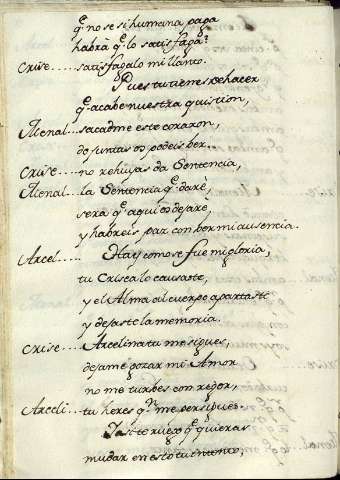 q̃ no se si humana paga
habra q̃ lo satisfaga?
Crise.... satisfagalo mi llanto.
Pues tu tienes de hacer
q̃ acabe nuestra quistion,
Alcenal.. sacadme este corazon,
do juntas os podeis ber..
Crise.... no rehuyas da Sentencia,
Alcenal.. la Sentencia q̃ darè,
sera q̃ aqui os dejarè,
y habreis paz con ber mi ausencia.
Arcel.... Hay como se fue mi gloria,
tu Crisea lo causaste,
y el Alma al cuerpo apartaste
y dejaste la memoria.
Crise.... Arcelina tu me sigues,
dejame gozar mi Amor
no me turbes con rigor,
Arceli... tu heres q̃n me persigues.
Ya si te ruego q̃ quieras
mudar en esto tu intento,